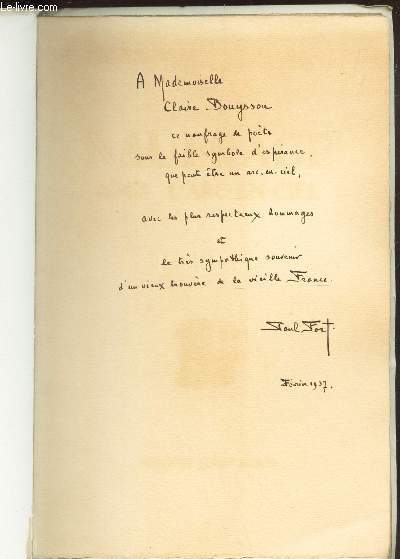 Le-Livre.com
A Mademoiselle
Claire Bouyssou
ce naufrage de poète
sous le faible symbole d'espérance,
que peut être un arc-en-ciel,
avec les plus respectueux hommages
et
le très sympathique souvenir
d'un vieux trouvère de la vieille France.
Paul Fort
Février 1937.